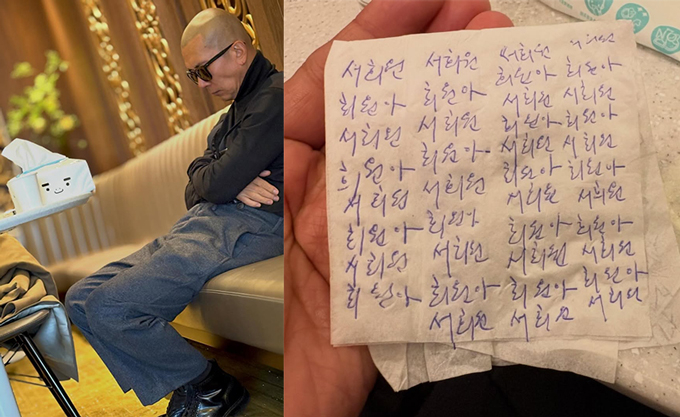 서희원 서희원 서희원 서희원
희원아 희원아
희원아 희원아 서희원 서희원
서희원 서희원 희원아 희원아
서희원 서희원
희원아 희원아 희원아 희원아
서희원 서희원 서희원 서희원
희원아 희원아 희원아 희원아
서희원 서희원 서희원 서희원
희원아 희원아 희원아 희원아
서희원 서희원 서희원